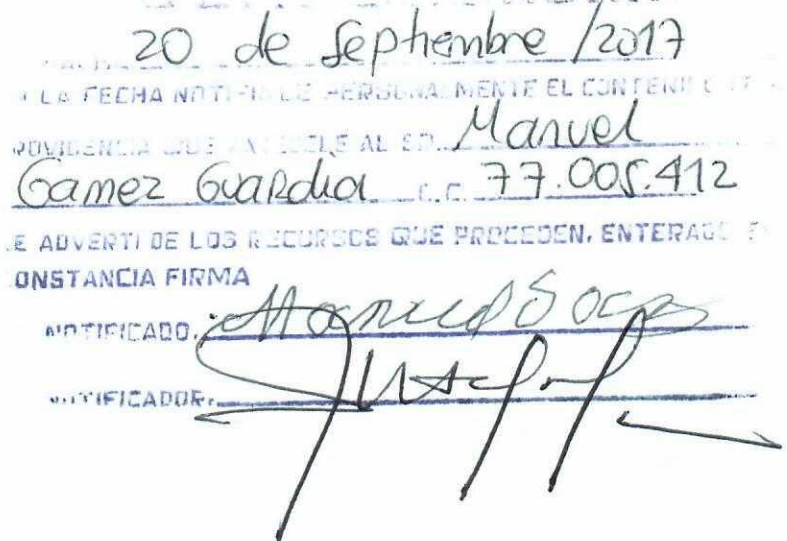 20 de Septiembre /2017
LA FECHA NOTIFIQUE PERSONALMENTE EL CONTENIDO
PROVIDENCIA QUE ANTECEDE AL SR. Manuel
Gamez Guardia C.C. 77.005.412
LE ADVERTI DE LOS RECURSOS QUE PROCEDEN, ENTERADO
CONSTANCIA FIRMA
NOTIFICADO.
NOTIFICADOR.